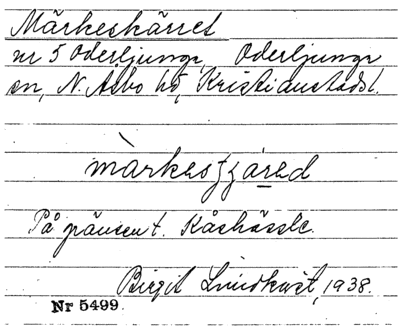 Märkeskärret
nr 5 Oderljunga, Oderljunga
sn, N. Åsbo hd, Kristianstads l.
På gränsen t. Kåshässle.
Birgit Lindkvist, 1938.
Nr 5499